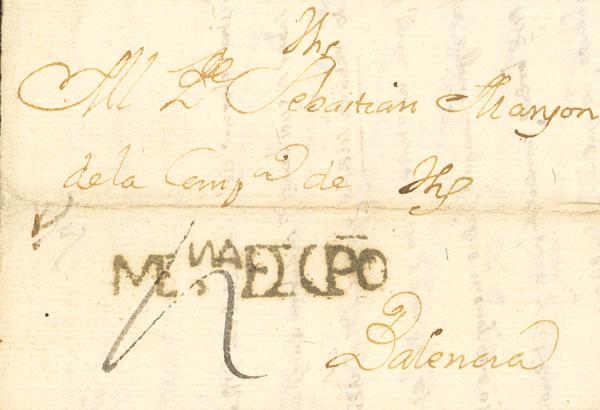 Jhs
All Pe Sebastian Manson
de la Compa de Jhs
MENA EL CPO
Palencia